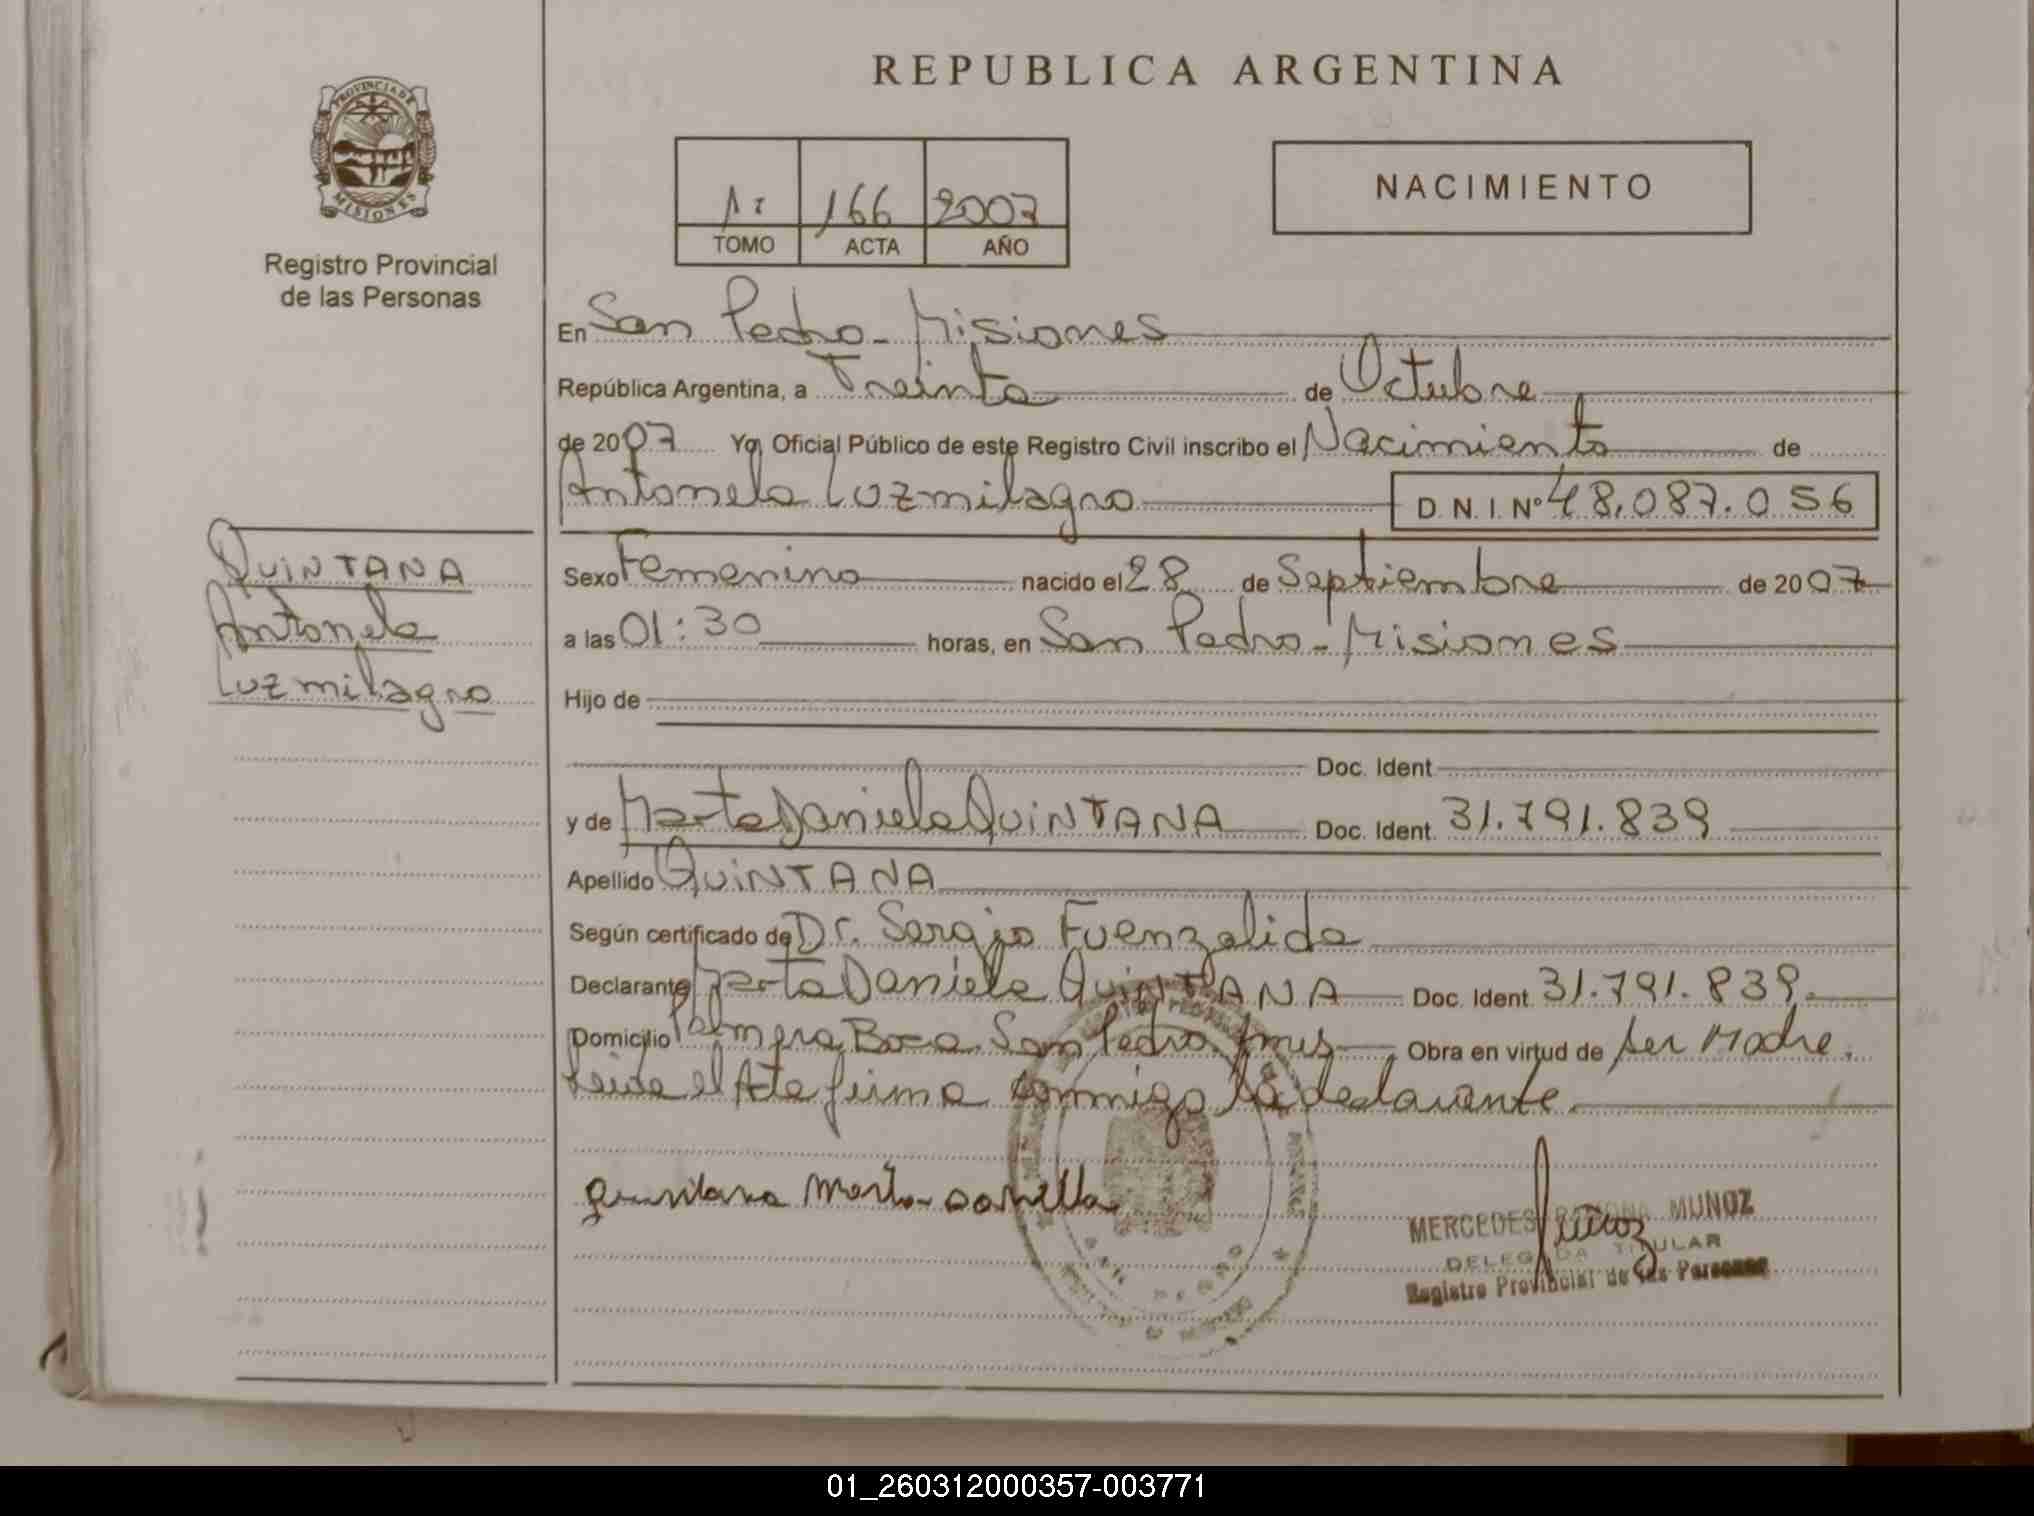 REPUBLICA ARGENTINA
PROVINCIA DE
MISIONES
Registro Provincial
de las Personas
166 2007
TOMO ACTA AÑO
NACIMIENTO
En San Pedro - Misiones
República Argentina, a Treinta de Octubre
de 2007 Yo, Oficial Público de este Registro Civil inscribo el Nacimiento de
Antonela Luzmilagro D. N. I. Nº 48.087.056
QUINTANA
Antonela
Luzmilagro
Sexo Femenino nacido el 28 de Septiembre de 2007
a las 01:30 horas, en San Pedro - Misiones
Hijo de
Doc. Ident
y de Marta Daniela QUINTANA Doc. Ident. 31.791.839
Apellido QUINTANA
Según certificado de Dr. Sergio Fuenzalida
Declarante Marta Daniela QUINTANA Doc. Ident. 31.791.839.
Domicilio Palmera Boca San Pedro mis Obra en virtud de ser Madre.
Leida el Acta firma conmigo la declarante.
quintana marta daniella
MERCEDES RAMONA MUÑOZ
DELEGADA TITULAR
Registro Provincial de las Personas
SAN PEDRO
01_260312000357-003771